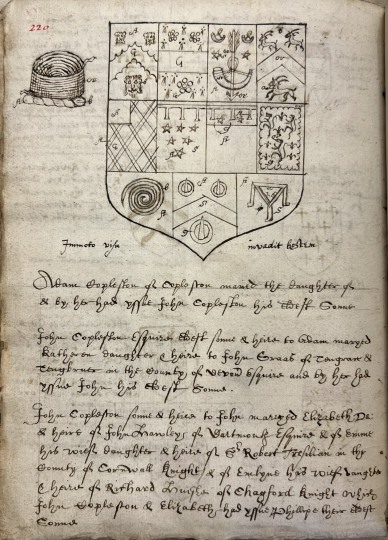 220
Adam Copleston of Copleston maried the daughter of
& by her had yssue John Copleston his eldest Sonne
John Copleston Esquire eldest sonne & heire to Adam maryed
Katheren daughter & heire to John Graas of Tengrace &
in the County of Devon Esquire and by her had
yssue John his eldest Sonne.
John Copleston sonne & heire to John maryed Elizabeth Da
& heire of John Hawley of Dartmouth Esquire & of Emme
his wief daughter & heire of Sr Robert Tresilian in the
County of Cornwall Knight & of Emlyne his wief daughter
& heire of Richard of Chagford Knight which
John Copleston & Elizabeth had yssue Phillipe their eldest
Sonne